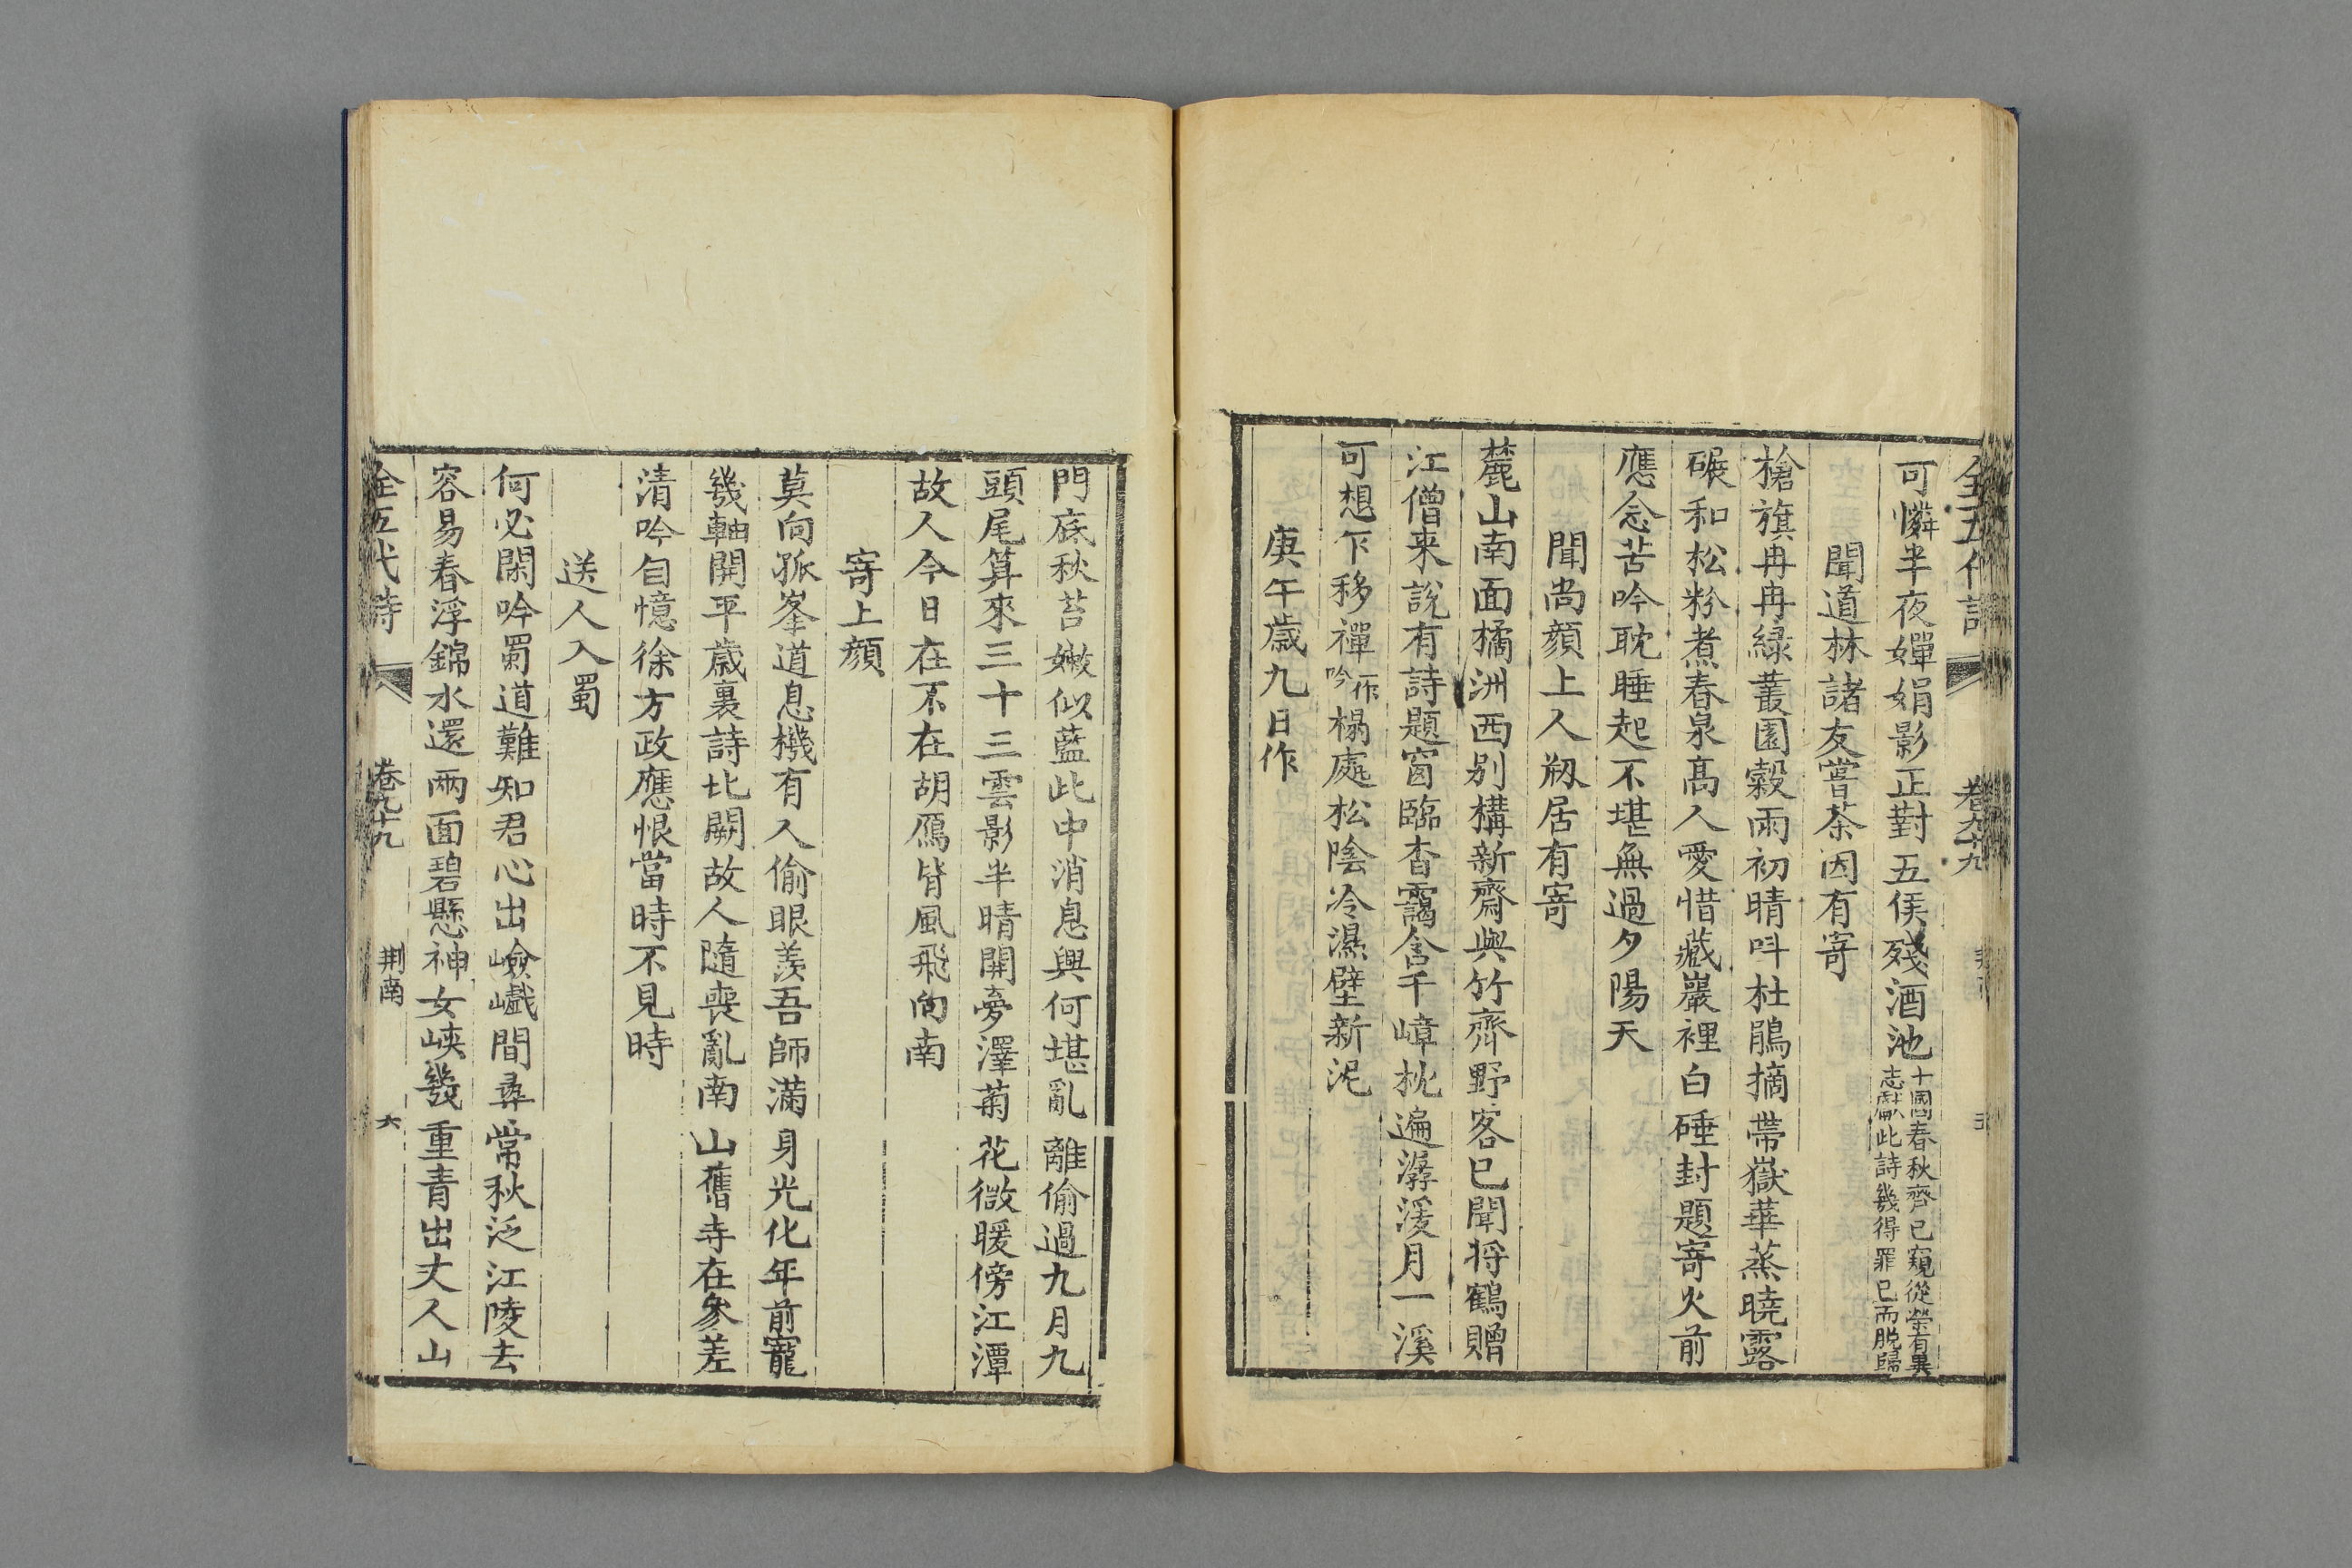 可憐半夜嬋娟影正對五侯殘酒池十國春秋齊已窺從榮有異
志獻此詩幾得罪已而脫歸
聞道林諸友嘗茶因有寄
槍旗冉冉綠叢園穀雨初晴呌杜鵑摘帶嶽華蒸曉露
碾和松粉煮春泉高人愛惜藏巖裡白硾封題寄火前
應念苦吟耽睡起不堪無過夕陽天
聞尚顏上人剏居有寄
麓山南面橘洲西别構新齋與竹齊野客已聞將鶴贈
江僧来說有詩題窗臨杳靄含千嶂枕遍潺湲月一溪
可想乍移禪一作吟榻處松陰冷濕壁新泥
庚午歲九日作
門底秋苔嫩似藍此中消息興何堪亂離偷過九月九
頭尾算來三十三雲影半晴開夢澤菊花微暖傍江潭
故人今日在不在胡鴈背風飛向南
寄上顏
莫向孤峯道息機有人偷眼羨吾師滿身光化年前寵
幾軸開平歲裏詩北闕故人隨喪亂南山舊寺在參差
清吟自憶徐方政應恨當時不見時
送人入蜀
何必閑吟蜀道難知君心出嶮巇間尋常秋泛江陵去
容易春浮錦水還兩面碧懸神女峽幾重青出丈人山
全五代詩 卷九十九 荆南 六